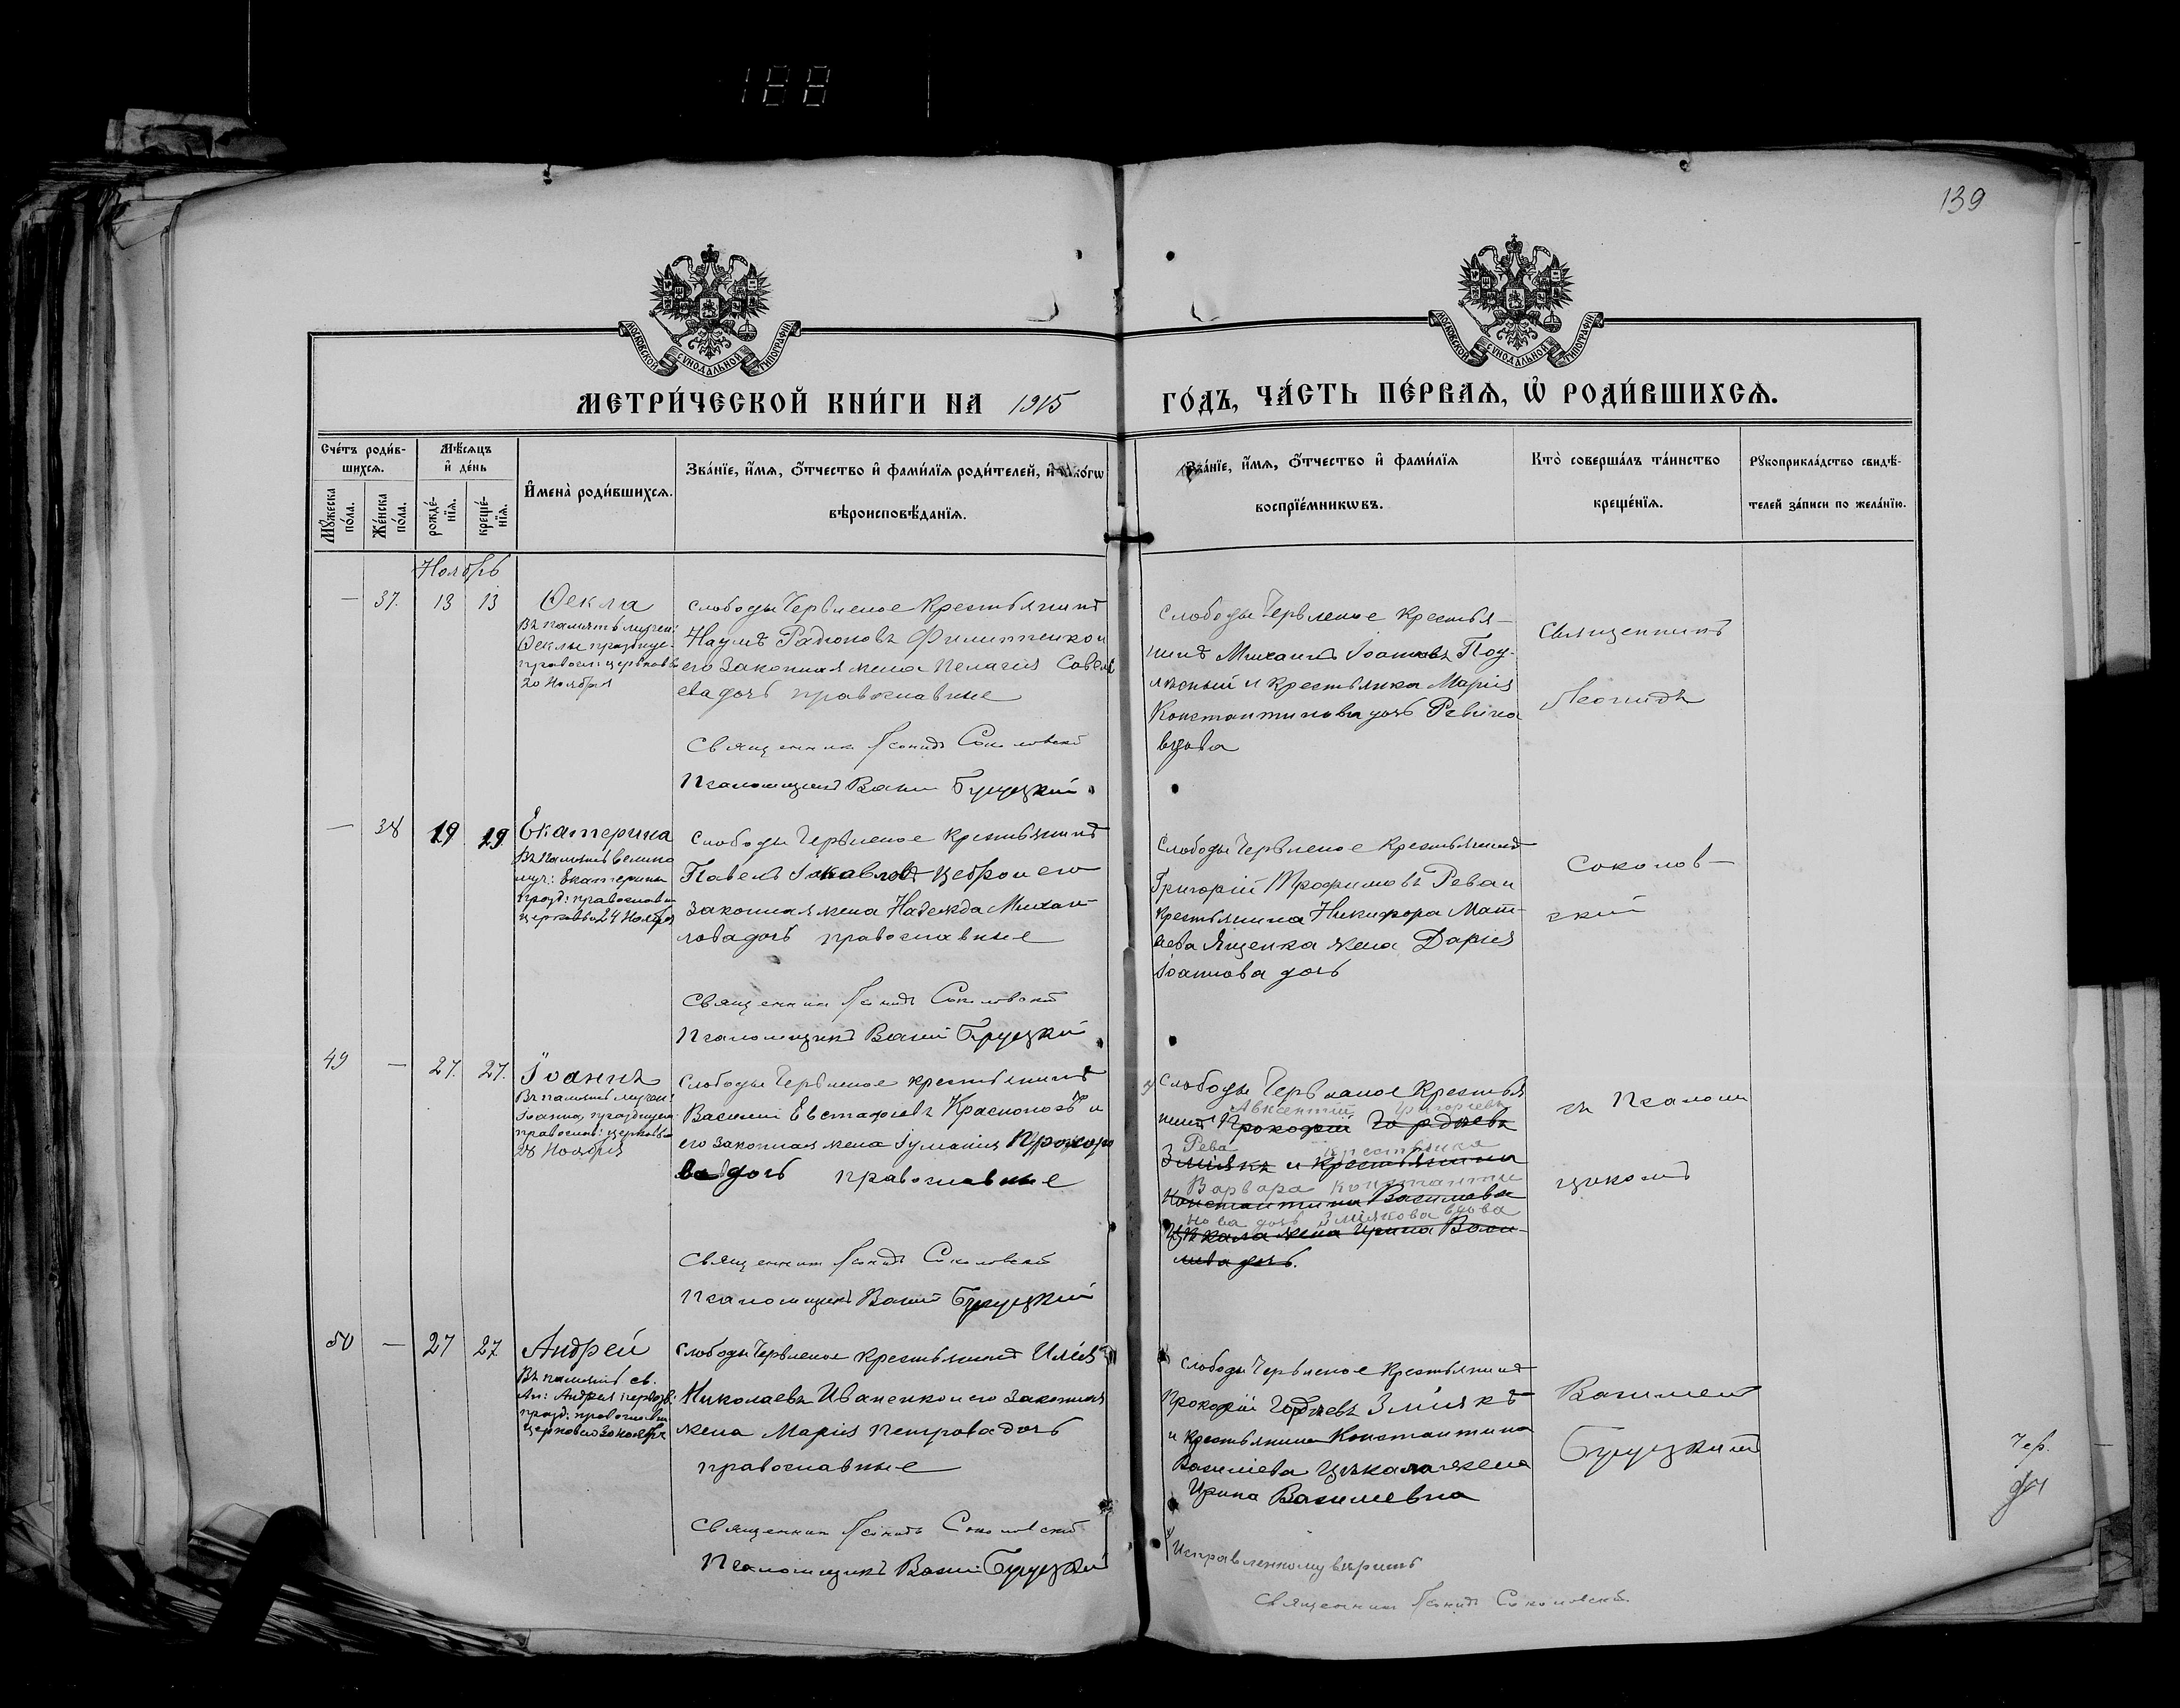 188
139
МОСКОВСКОЙ СѴНОДАЛЬНОЙ ТИПОГРАФІИ
МОСКОВСКОЙ СѴНОДАЛЬНОЙ ТИПОГРАФІИ
МЕТРИ́ЧЕСКОЙ КНИ́ГИ НА 1915
ГО́ДЪ, ЧА́СТЬ ПЕ́РВАѦ, Ѡ҆ РОДИ́ВШИХСѦ.
Сче́тъ роди́в-
шихсѧ.
Мꙋ́жеска
по́ла.
Же́нска
по́ла.
Мѣ́сѧцъ
и҆ де́нь
рожде́-
нїѧ.
креще́-
нїѧ.
И҆мена̀ роди́вшихсѧ.
Зва́нїе, и҆́мѧ, ѻ҆́тчество и҆ фами́лїѧ роди́телей, и҆ како́гѡ
вѣроисповѣ́данїѧ.
Зва́нїе, и҆́мѧ, ѻ҆́тчество и҆ фами́лїѧ
воспрїе́мникѡвъ.
Кто̀ соверша́лъ та́инство
креще́нїѧ.
Рꙋкоприкла́дство свидѣ́-
телей за́писи по жела́нїю.
Ноябрь
— 37. 13 13 Ѳекла
Въ память мучен:
Ѳеклы празднуе-
правосл: церковью
20 Ноября
слободы Червленое крестьянинъ
Наумъ Радіоновъ Филипенко и
его законная жена Пелагія Савель
ева дочь православные
Священникъ Леонидъ Соколовскій
Псаломщикъ Васил Буруцкій
Слободы Червленое крестья-
нинъ Михаилъ Іоанновъ Под-
лѣсный и крестьянка Марія
Константинова дочь Ревина
вдова
Священникъ
Леонидъ
— 38 19 19 Екатерина
Въ память велико
муч: Екатерины
празд: православн
церковью 24 Ноября
Слободы Червленое крестьянинъ
Павелъ Іаковлевъ Цебро и его
законная жена Надежда Михаи-
лова дочь православные
Священникъ Леонидъ Соколовскій
Псаломщикъ Васил Буруцкій
Слободы Червленое крестьянинъ
Григорій Трофимовъ Рева и
крестьянина Никифора Мат-
веева Ященка жена Дарія
Іоаннова дочь
Соколов-
скій
49 — 27. 27. Іоаннъ
Въ память мучен:
Іоанна, празднуем:
правосл: церковью
28 Ноября
Слободы Червленое крестьянинъ
Василій Евстафіевъ Красноносъ и
его законная жена Іуліанія Прохоро
ва дочь православные
Священникъ Леонидъ Соколовскій
Псаломщикъ Васил Буруцкій
Слободы Червленое Крестья
Авксентій Григорьевъ
нинъ Прокофій Гордѣевъ
Рева крестьянка
Зміякъ и крестьянина
Варвара Константи
Константина Васильева
нова дочь Зміякова вдова
Цѣкала жена Ирина Васи-
льева дочь.
съ Псалом
щикомъ
50 — 27 27 Андрей
Въ память св.
Ап: Андрея первозв.
празд: православн
церковью 30 ноября
Слободы Червленое крестьянинъ Илія
Николаевъ Иваненко и его законная
жена Марія Петрова дочь
православные
Священникъ Леонидъ Соколовскій
Псаломщикъ Васил Буруцкій
Слободы Червленое Крестьянинъ
Прокофій Гордѣевъ Зміякъ
и крестьянина Константина
Васильева Цѣкала жена
Ирина Васильевна
Василіемъ
Буруцкимъ
Исправленному вѣрить
Священникъ Леонидъ Соколовскій
Чер.